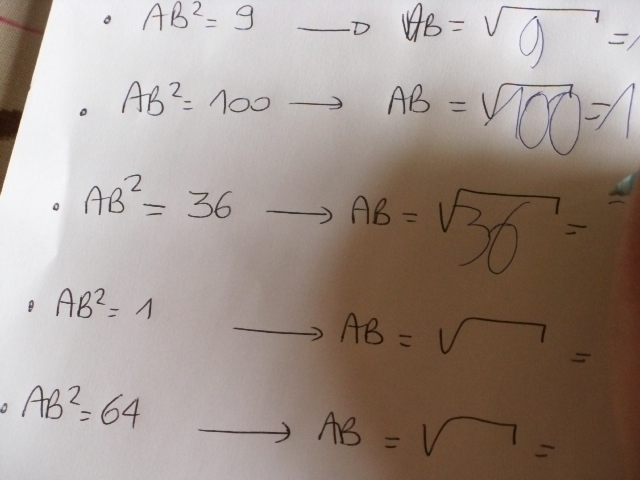 • AB² = 9 → AB = √9 =
• AB² = 100 → AB = √100 = 1
• AB² = 36 → AB = √36 =
• AB² = 1 → AB = √ =
• AB² = 64 → AB = √ =